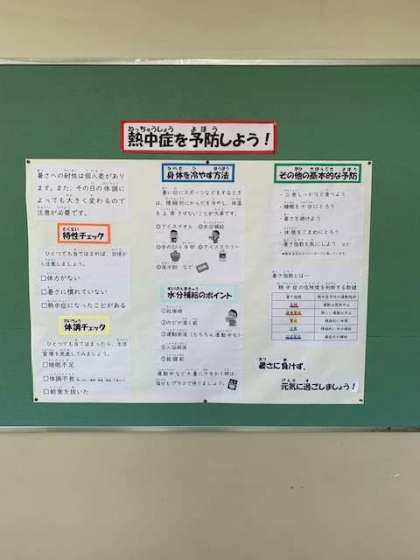 熱中症を予防しよう！
暑さへの耐性は個人差があり
ます。また、その日の体調に
よっても大きく変わるので
注意が必要です。
特性チェック
ひとつでも当てはまれば、
□体力がない
□暑さに慣れていない
□熱中症になったことがある
体調チェック
ひとつでも当てはまったら、生活
管理を見直してみましょう。
□睡眠不足
□体調不良
□朝食を抜いた
身体を冷やす方法
暑い日にスポーツなどをするとき
は、積極的にからだを冷やし、体温
を上昇させないことが大事です。
①アイスタオル ②水分補給
④アイススラリー
水分補給のポイント
①起床後
②のどが渇く前
③運動前後（もちろん運動中も）
④入浴前後
⑤就寝前
運動中など大量に汗をかく時は、
塩分もプラスで摂りましょう。
その他の基本的な予防
しっかりと食べよう
睡眠を十分にとろう
暑さを避けよう
休憩をこまめにとろう
暑さ指数を気にしよう など
暑さ指数とは…
熱中症の危険度を判断する数値
暑さに負けず、
元気に過ごしましょう！